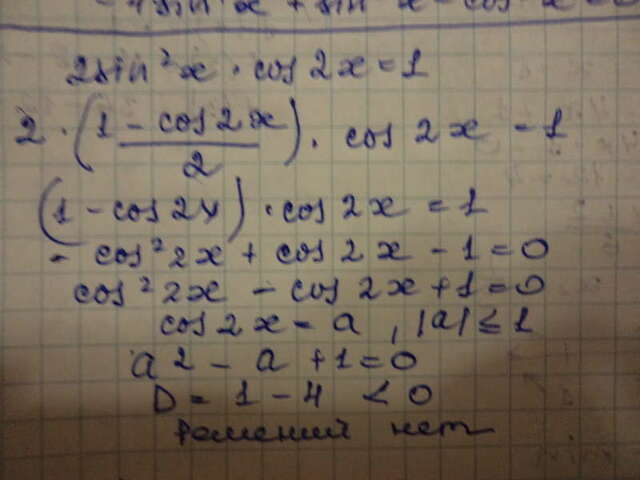 2sin²x · cos 2x = 1
2 · (1 - cos 2x / 2) · cos 2x - 1
(1 - cos 2x) · cos 2x = 1
- cos² 2x + cos 2x - 1 = 0
cos² 2x - cos 2x + 1 = 0
cos 2x = a , |a| ≤ 1
a2 - a + 1 = 0
D = 1 - 4 < 0
Решений нет